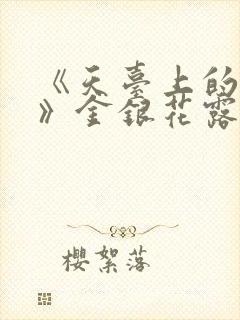 《天臺上的
》金銀花露
櫻絮落